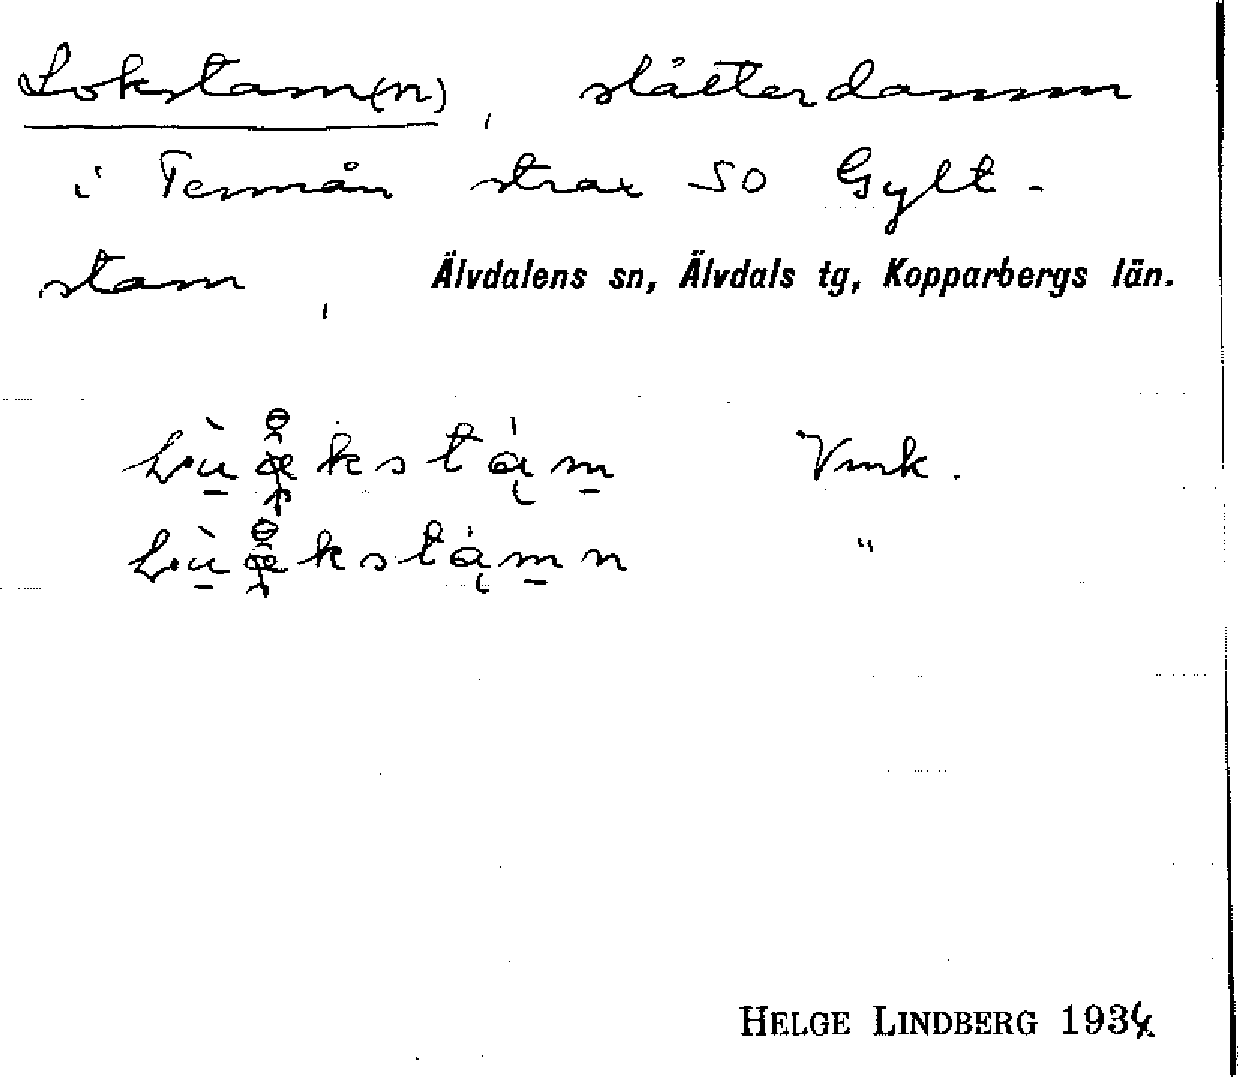 Lokstam(n), slåtterdamm
i Tennån strax SO Gylt-
stam, Älvdalens sn, Älvdals tg, Kopparbergs län.
Vmk.
"
HELGE LINDBERG 1934